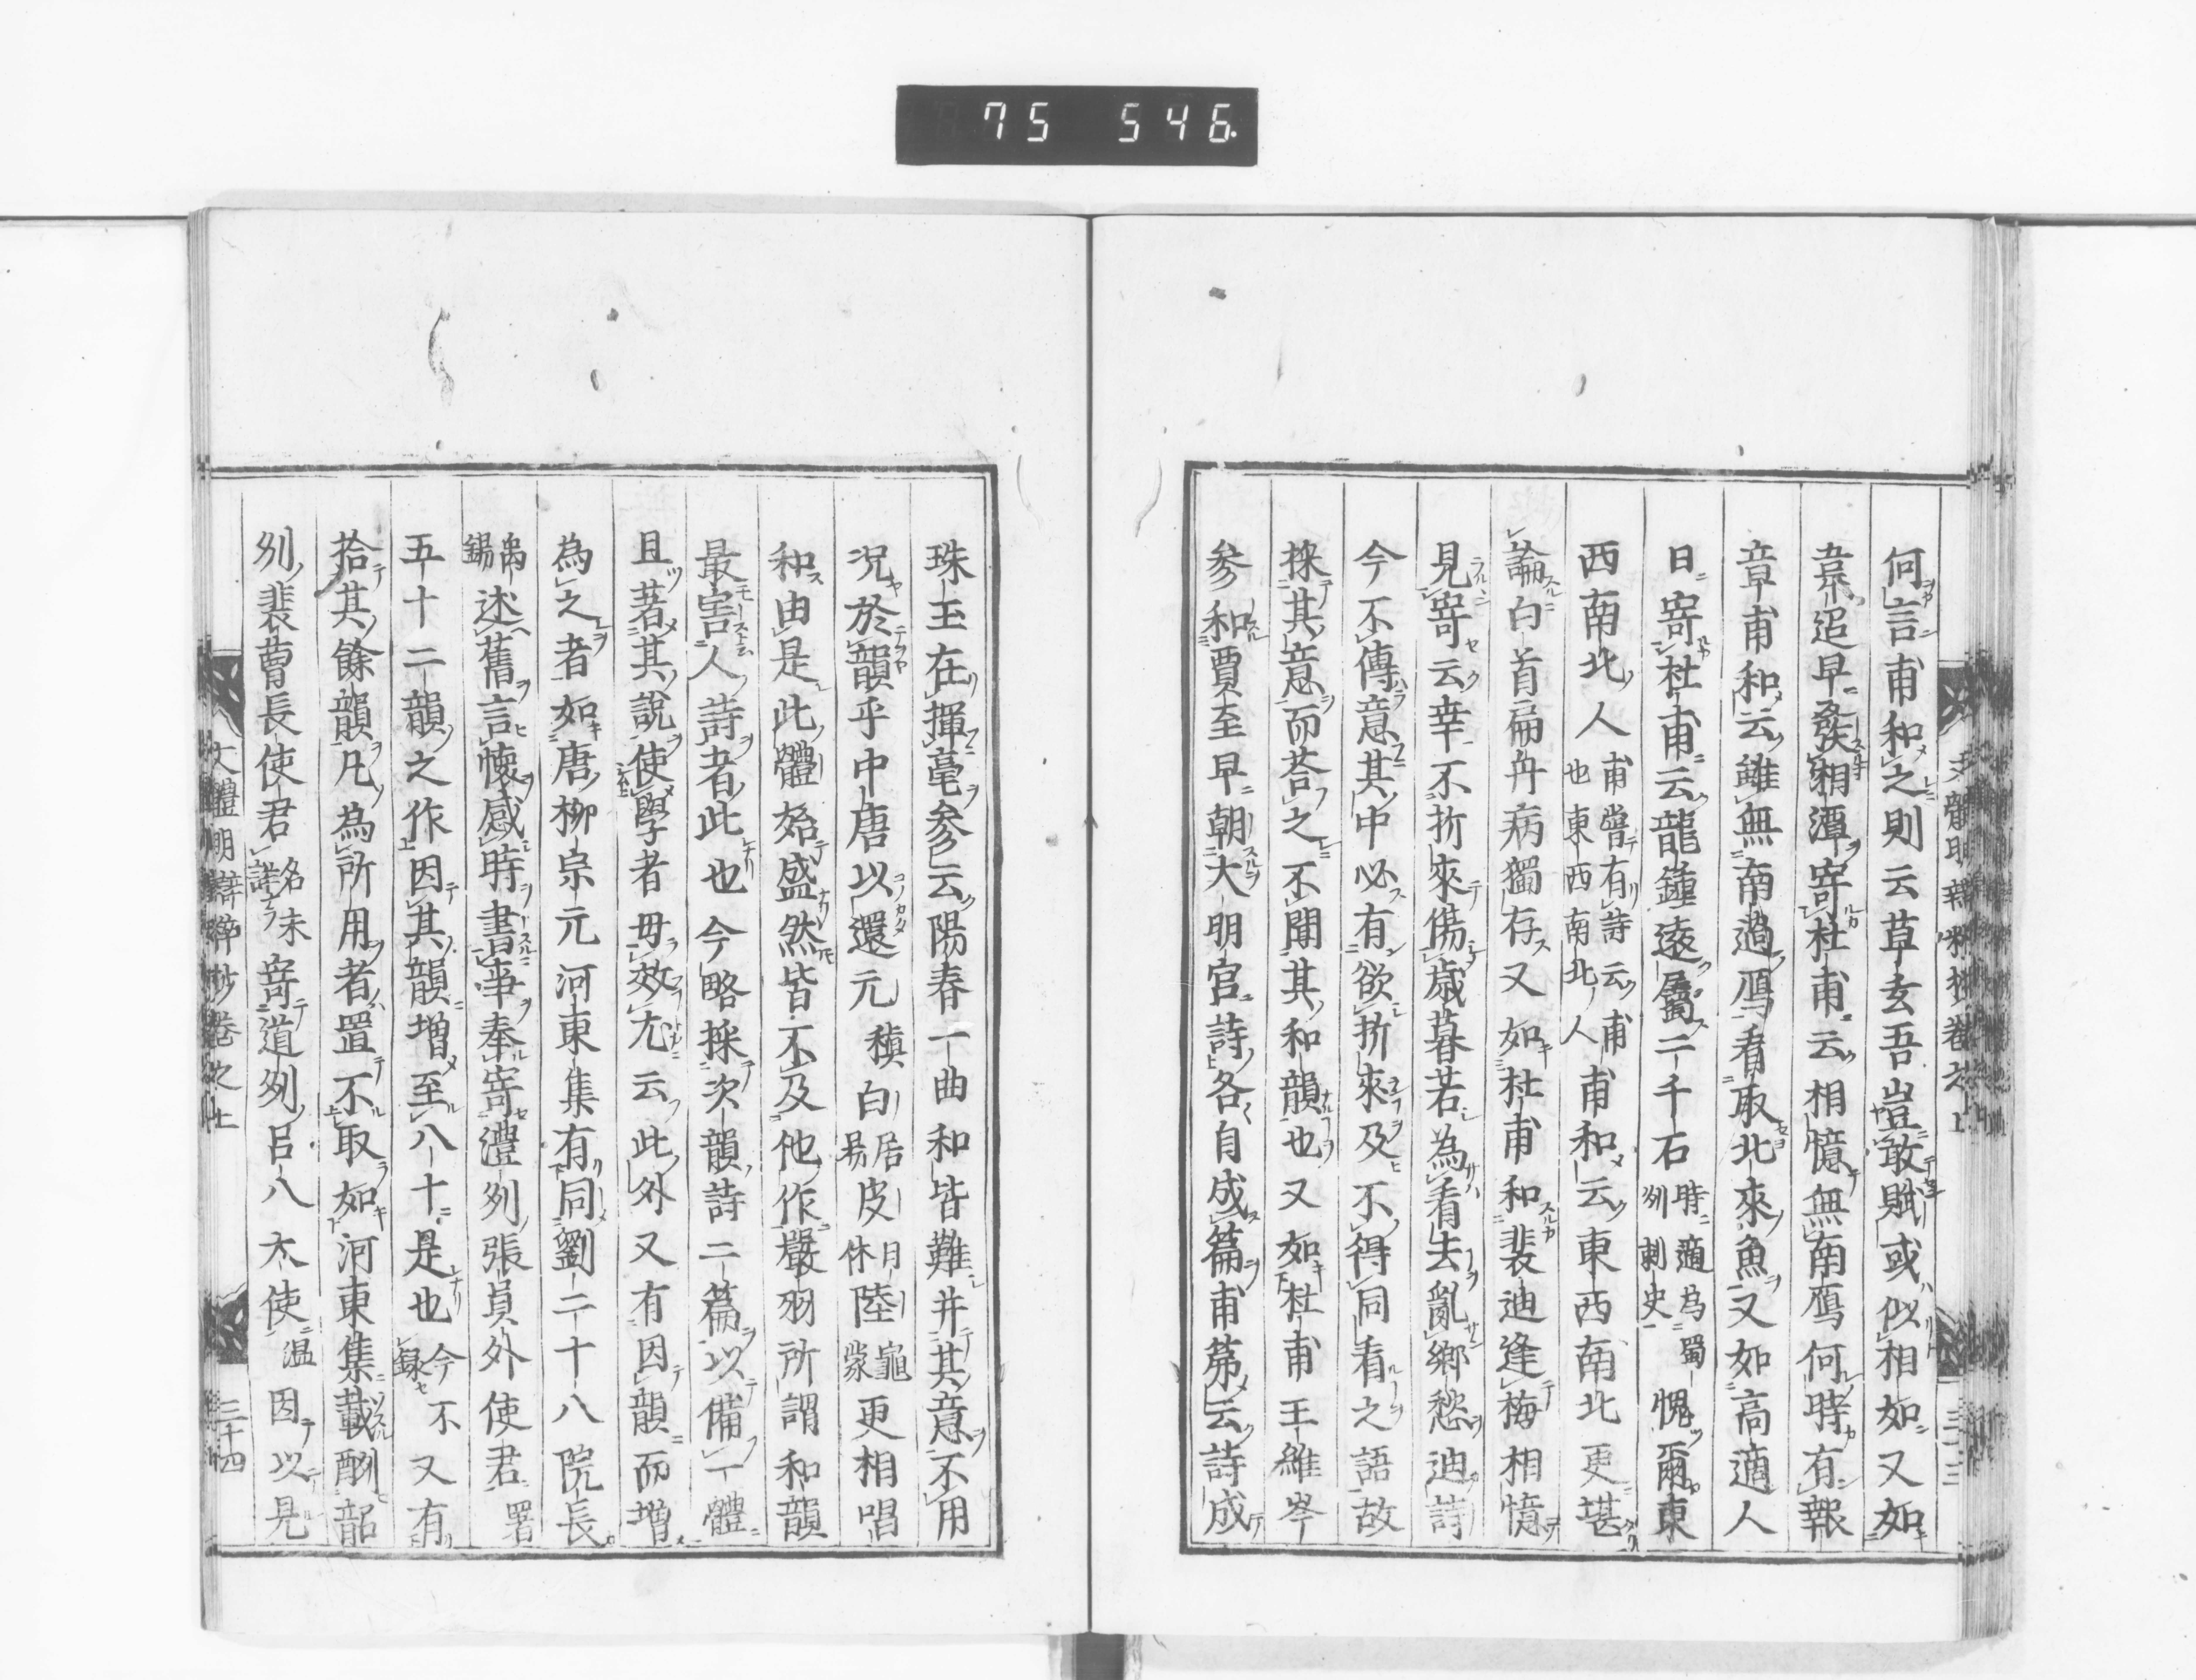 75 546
何言甫和之則云草玄吾豈敢賦或似相如又如
韋迢早發湘潭寄杜甫云相憶無南鴈何時有報
章甫和云雖無南過鴈看取北來魚又如高適人
日寄杜甫云龍鍾還屬二千石時適為蜀州刺史愧爾東
西南北人甫嘗有詩云甫也東西南北人甫和云東西南北更堪
論白首扁舟病獨存又如杜甫和裴迪逢梅相憶
見寄云幸不折來傷歲暮若為看去亂鄉愁迪詩
今不傳意其中必有欲折來及不得同看之語故
採其意而荅之不聞其和韻也又如杜甫王維岑
參和賈至早朝大明宮詩各自成篇甫苐云詩成
文體明辯粹抄卷之上
三十三
珠玉在揮毫參云陽春一曲和皆難并其意不用
况於韻乎中唐以還元稹白居易皮日休陸龜蒙更相唱
和由是此體始盛然皆不及他作嚴羽所謂和韻
最害人詩者此也今略採次韻詩二篇以備一體
且著其說使學者毋效尤云此外又有因韻而增
為之者如唐柳宗元河東集有同劉二十八院長
禹錫述舊言懷感時書事奉寄澧州張員外使君署
五十二韻之作因其韻增至八十是也今不錄又有
拾其餘韻凡為所用者置不取如河東集載酬韶
州裴曹長使君名未詳寄道州呂八大使溫因以見
文體明辯粹抄卷之上
三十四